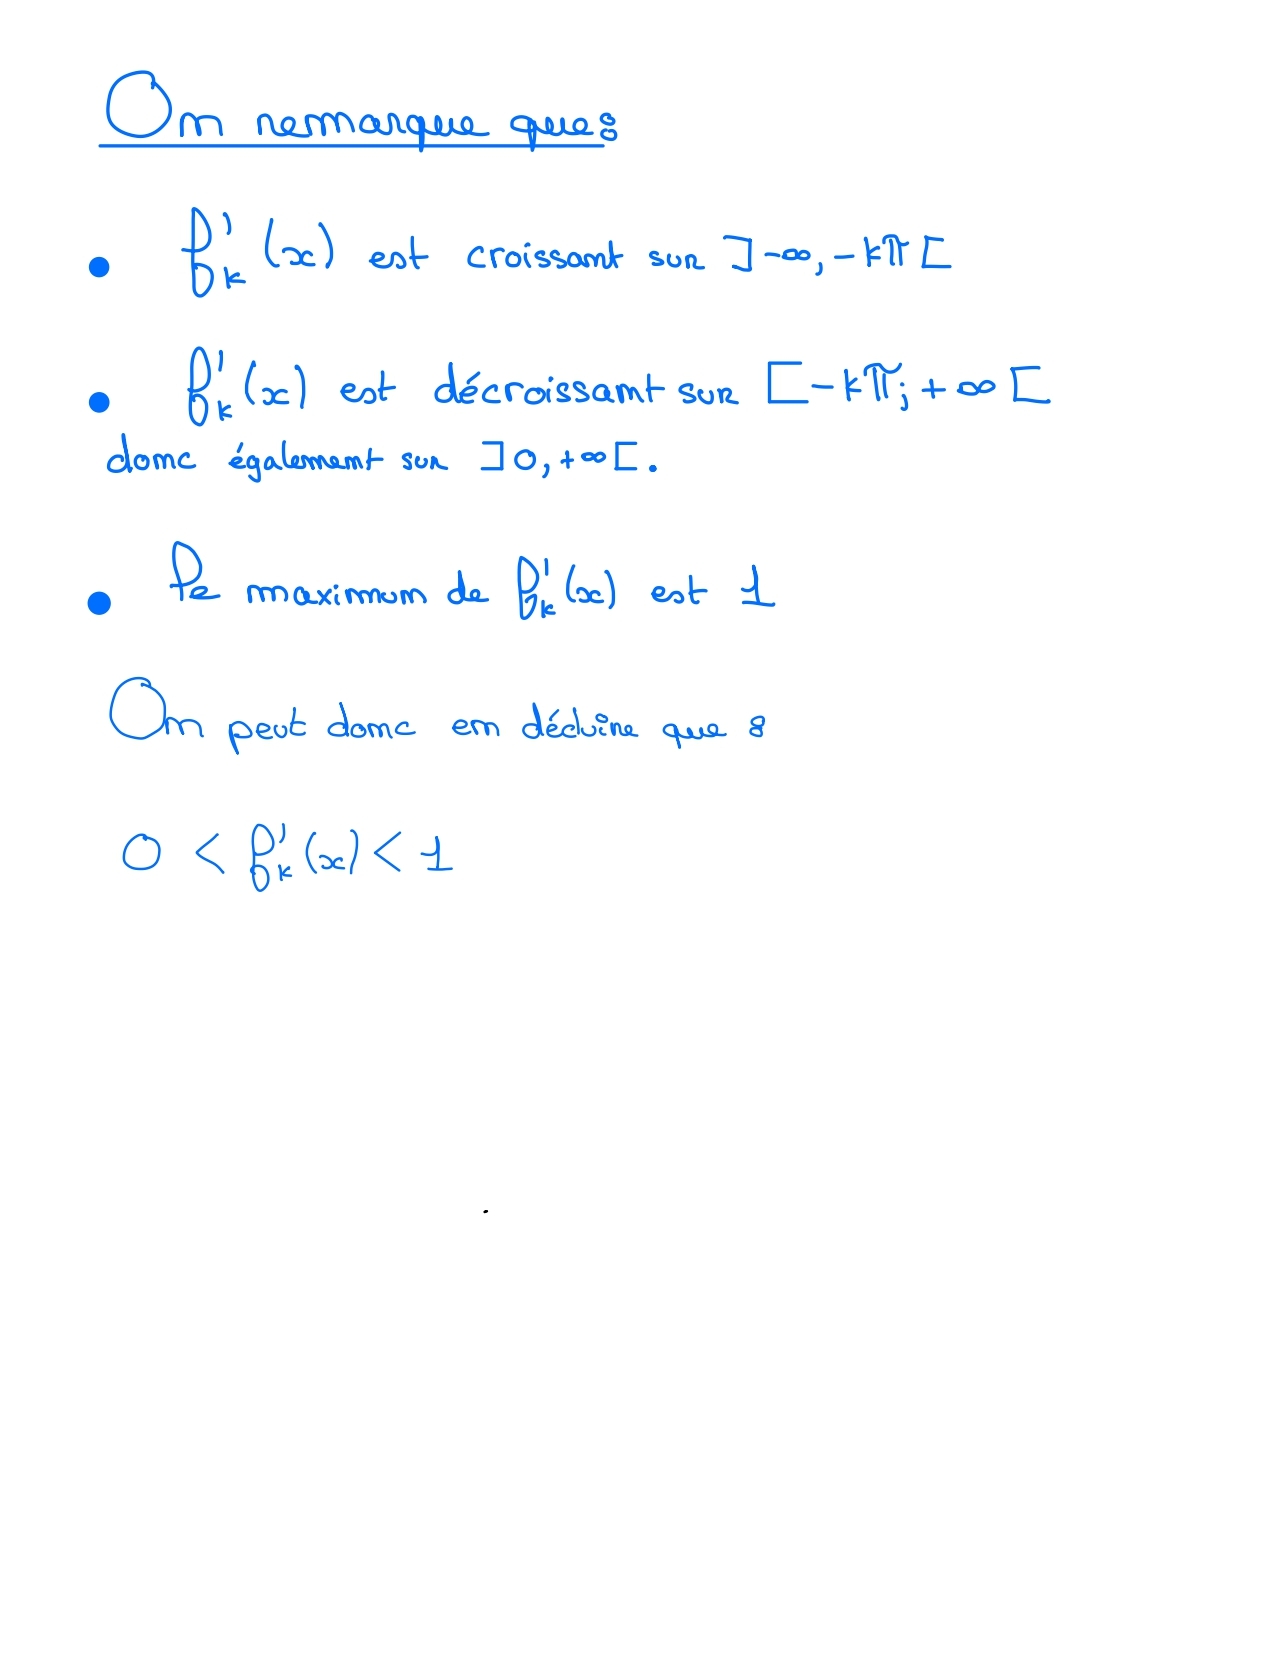 On remarque que :
• f'k (x) est croissant sur ]-∞, -kπ[
• f'k (x) est décroissant sur [-kπ; +∞[
donc également sur ]0, +∞[.
• le maximum de f'k (x) est 1
On peut donc en déduire que :
0 < f'k (x) < 1